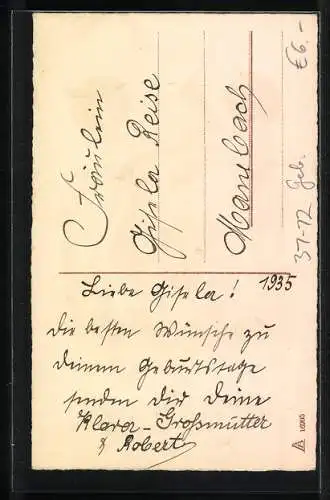 Fräulein
Gisela Reise
Mansbach
€6.-
37-12 Geb.
Liebe Gisela!
1935
Die besten Wünsche zu
deinem Geburtstage
senden dir deine
Klara - Großmutter
& Robert